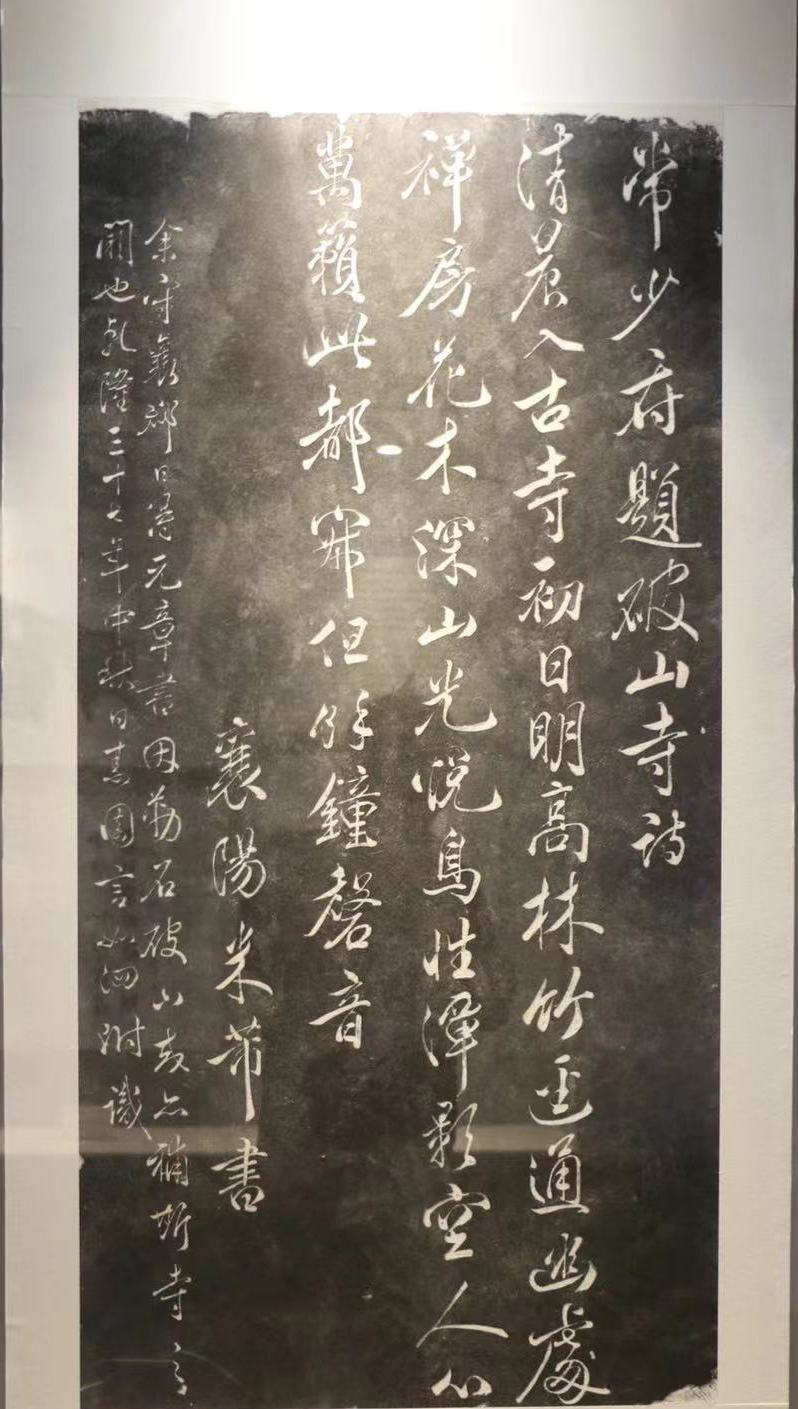 常少府題破山寺詩
清晨入古寺初日明高林竹逕通幽處
禪房花木深山光悅鳥性潭影空人心
萬籟此都寂但餘鐘磬音
襄陽米芾書
余守襄鄖日得元章書因勒石破山亦補斯寺之
闕也乾隆三十七年中秋日素園言如泗附識